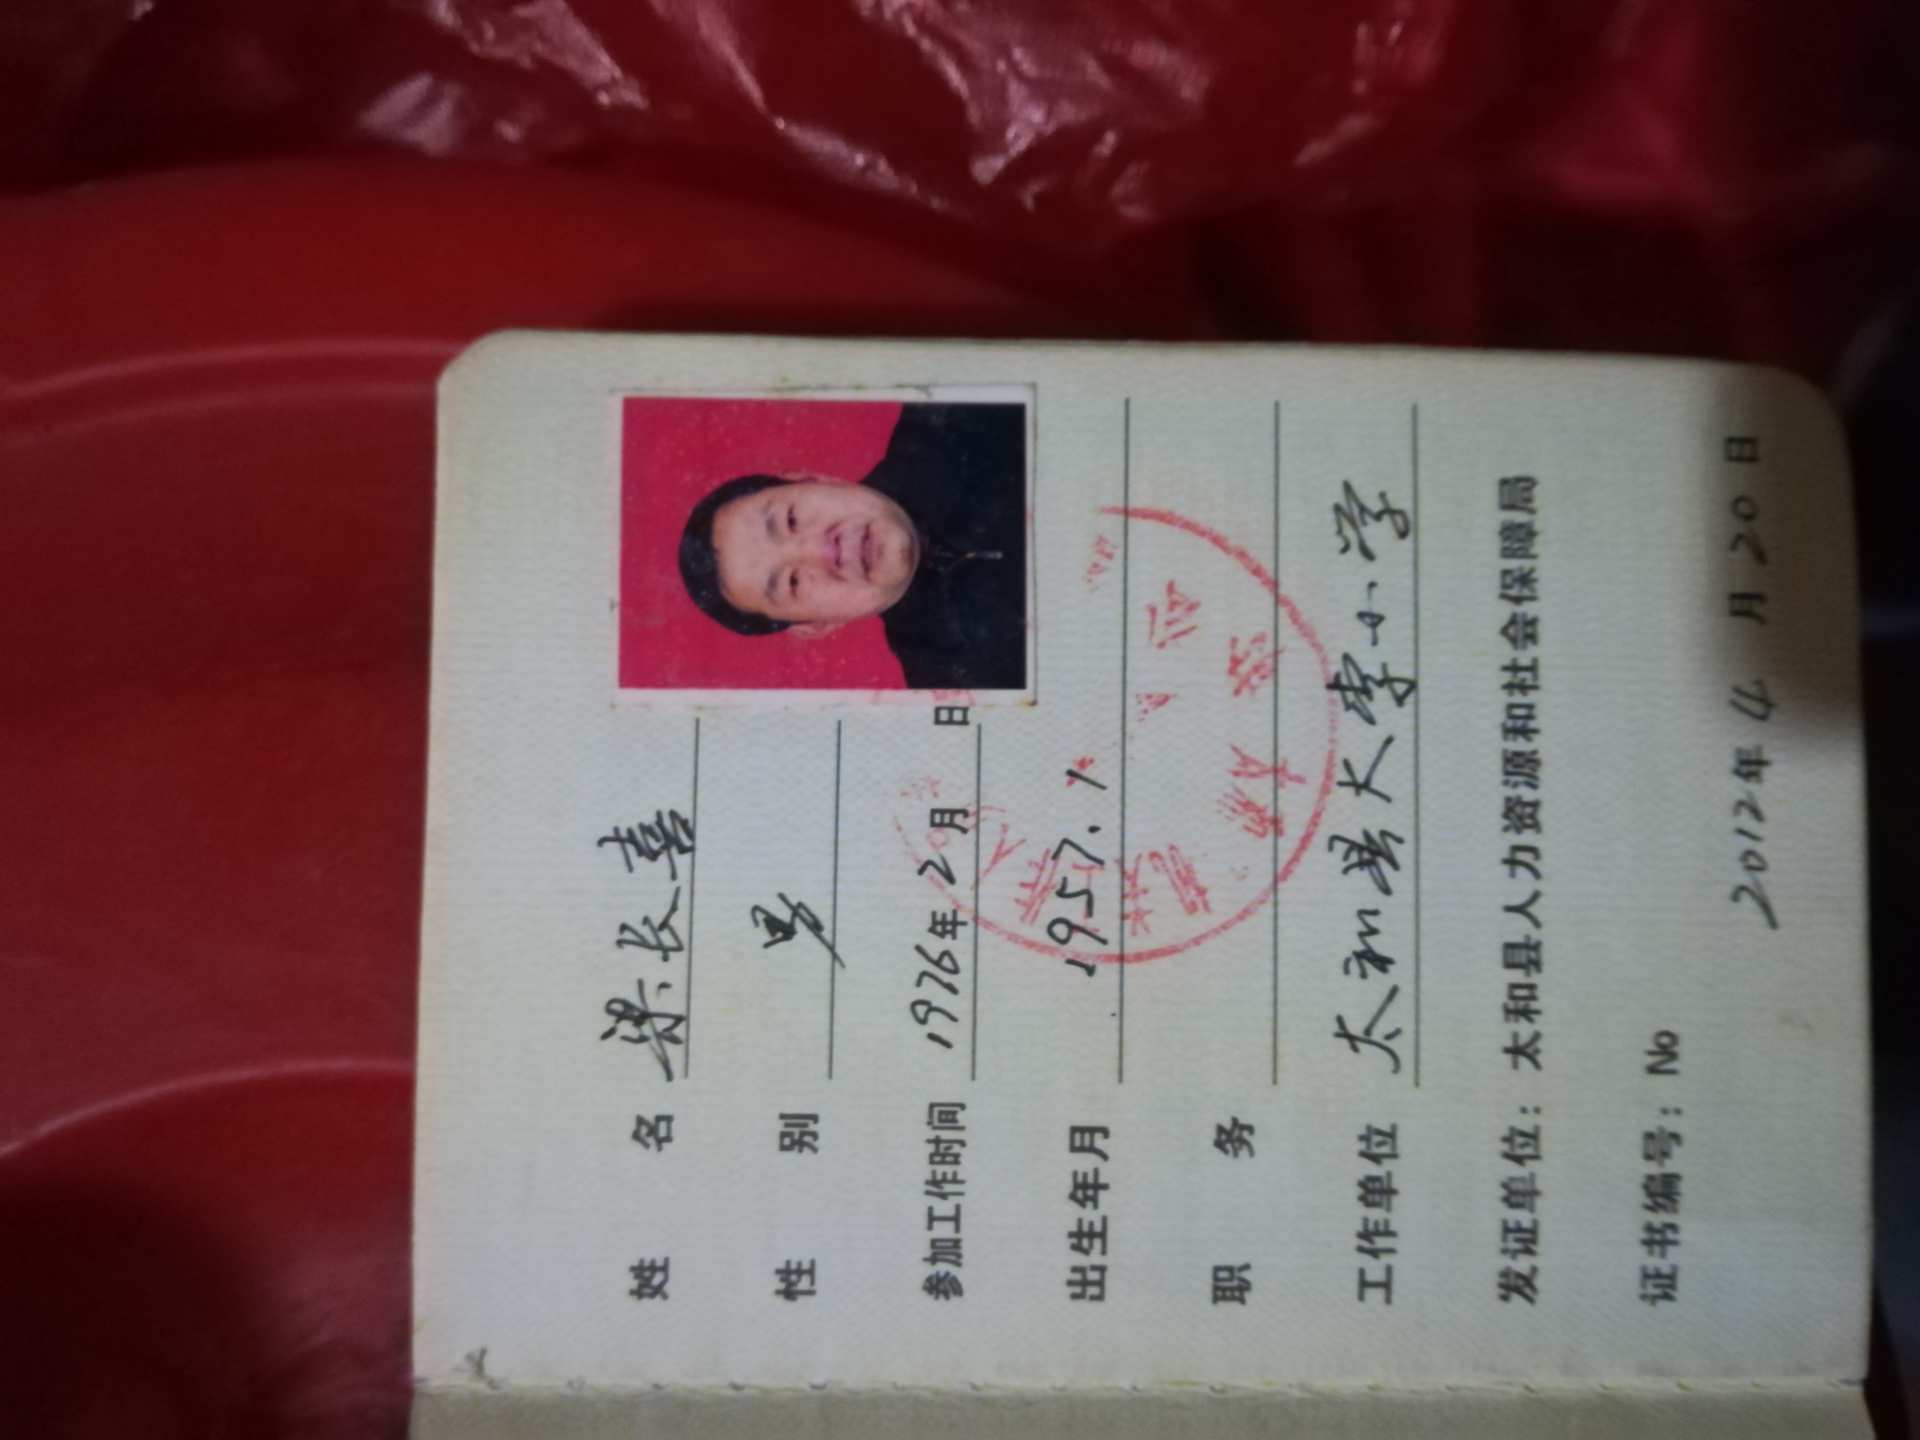 姓名 梁长喜
性别 男
参加工作时间 1976年2月 日
出生年月 1957.1
职务
工作单位 太和县大李小学
发证单位：太和县人力资源和社会保障局
证书编号：No
2012年4月20日